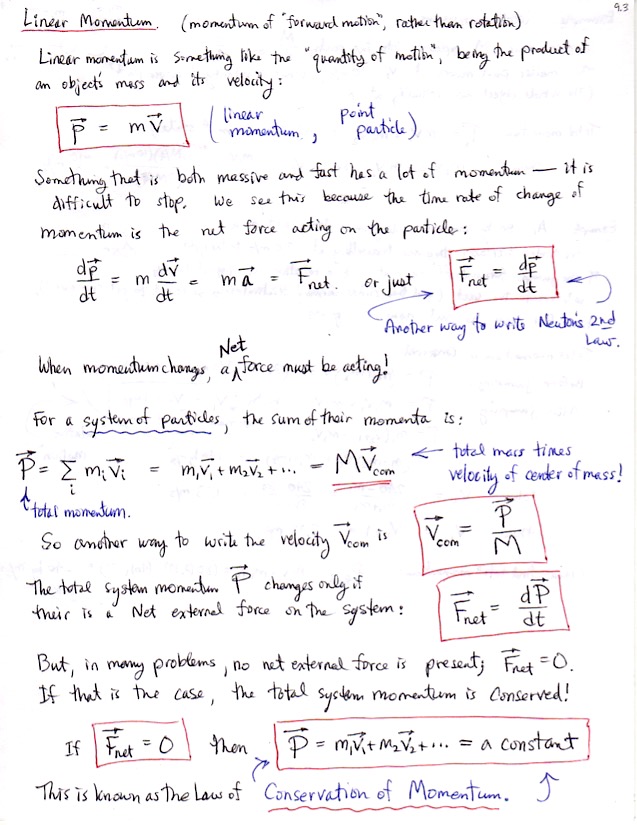 9.3
Linear Momentum. (momentum of "forward motion", rather than rotation)
Linear momentum is something like the "quantity of motion", being the product of
an object's mass and its velocity:
p⃗ = m v⃗ (linear momentum, point particle)
Something that is both massive and fast has a lot of momentum — it is
difficult to stop. We see this because the time rate of change of
momentum is the net force acting on the particle:
dp⃗/dt = m dv⃗/dt = m a⃗ = F⃗net. or just F⃗net = dp⃗/dt
Another way to write Newton's 2nd
Law.
When momentum changes, a Net force must be acting!
For a system of particles, the sum of their momenta is:
P⃗ = Σi mi v⃗i = m1v⃗1 + m2v⃗2 + ... = M V⃗com ← total mass times
velocity of center of mass!
total momentum.
So another way to write the velocity V⃗com is V⃗com = P⃗/M
The total system momentum P⃗ changes only if
their is a Net external force on the system: F⃗net = dP⃗/dt
But, in many problems, no net external force is present; F⃗net = 0.
If that is the case, the total system momentum is conserved!
If F⃗net = 0 then P⃗ = m1v⃗1 + m2v⃗2 + ... = a constant
This is known as the Law of Conservation of Momentum.